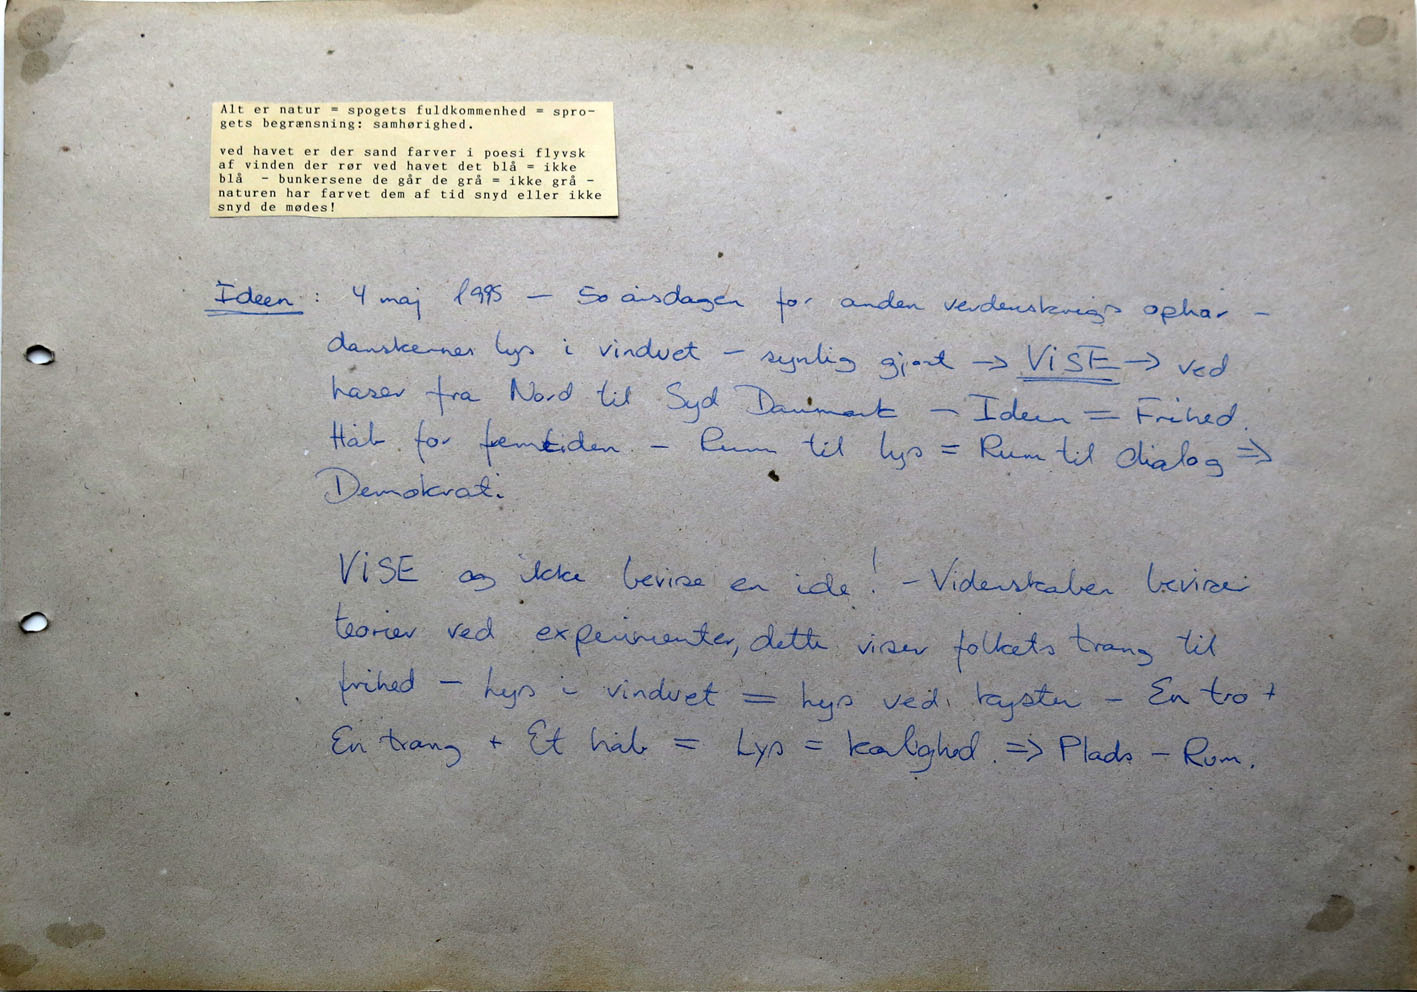 Alt er natur = spogets fuldkommenhed = spro-
gets begrænsning: samhørighed.
ved havet er der sand farver i poesi flyvsk
af vinden der rør ved havet det blå = ikke
blå - bunkersene de går de grå = ikke grå -
naturen har farvet dem af tid snyd eller ikke
snyd de mødes!
Ideen : 4 maj 1995 - 50 årsdagen for anden verdenskrigs ophør -
danskernes lys i vinduet - synlig gjort → ViSE → ved
laser fra Nord til Syd Danmark - Ideen = Frihed.
Håb for fremtiden - Rum til lys = Rum til dialog ⇒
Demokrati.
ViSE og ikke bevise en ide! - Videnskaben beviser
teorier ved experimenter, dette viser folkets trang til
frihed - Lys i vinduet = Lys ved kysten - En tro +
En trang + Et håb = Lys = kærlighed. ⇒ Plads - Rum.